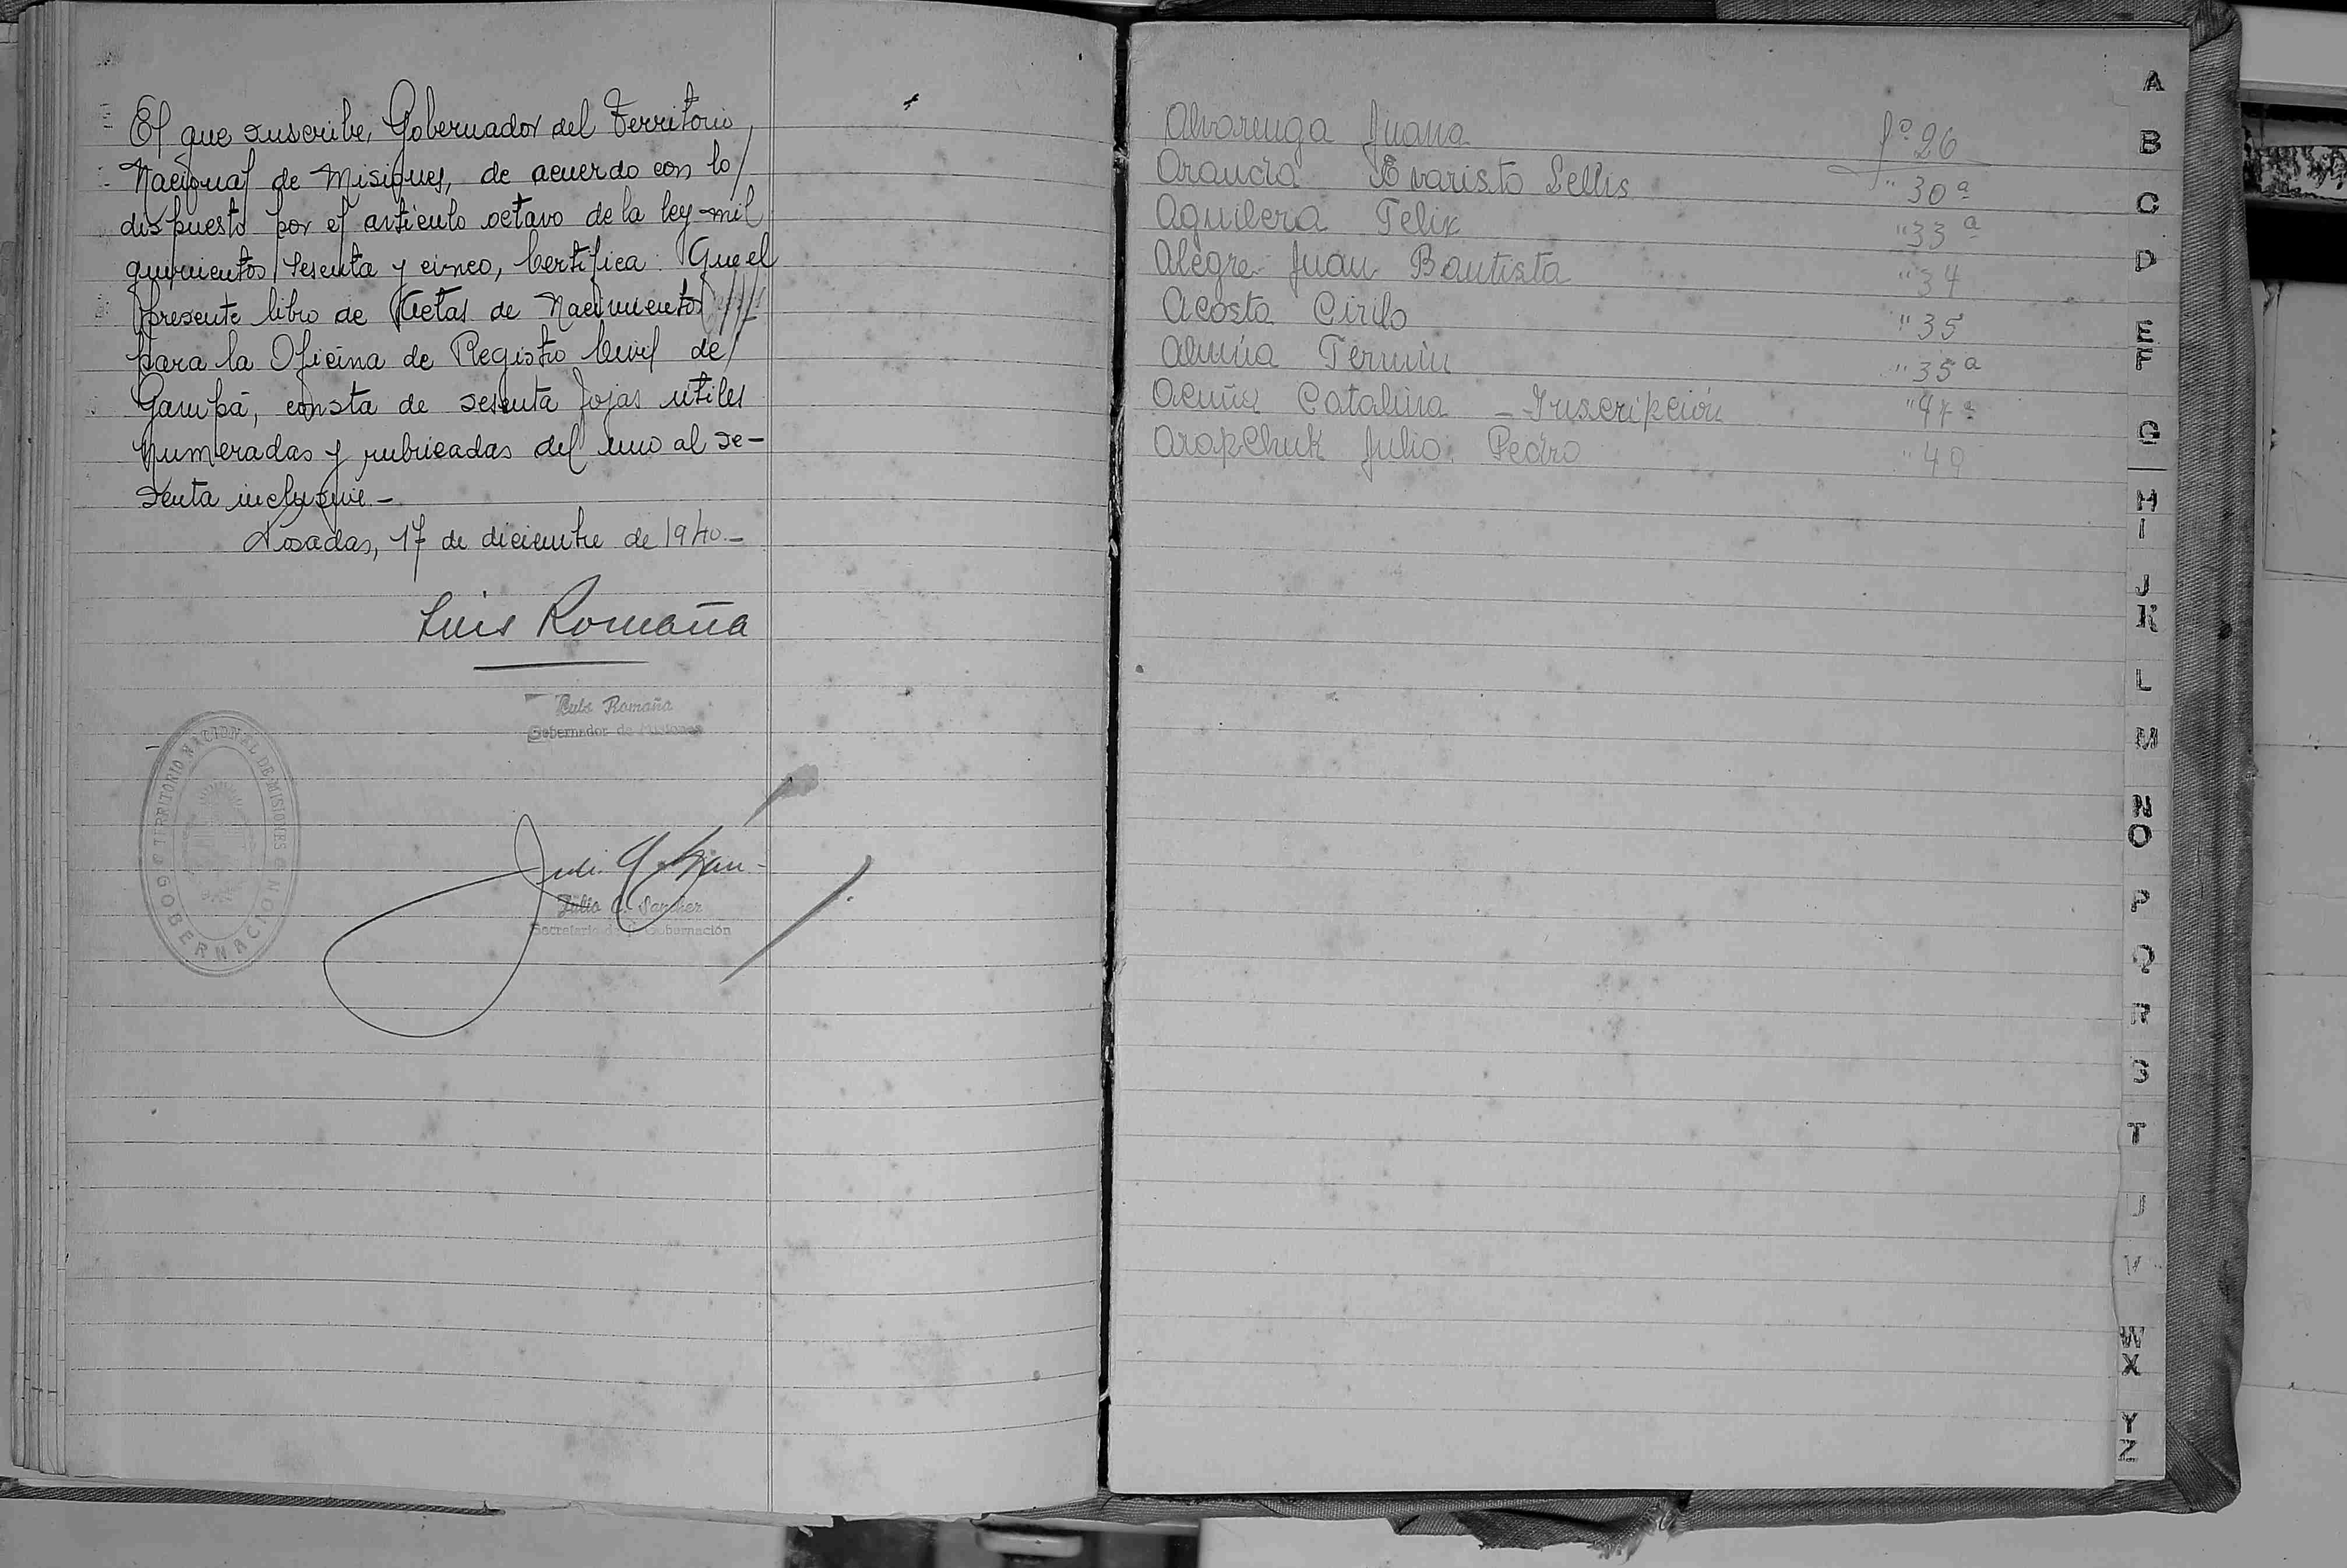 El que suscribe, Gobernador del Territorio
Nacional de Misiones, de acuerdo con lo
dispuesto por el artículo octavo de la ley mil
quinientos sesenta y cinco, Certifica: Que el
presente libro de Actas de Nacimientos
para la Oficina de Registro Civil de
Garupá, consta de sesenta fojas útiles
numeradas y rubricadas del uno al se-
senta inclusive.-
Posadas, 17 de diciembre de 1940.-
Luis Romaña
Luis Romaña
Gobernador de Misiones
TERRITORIO NACIONAL DE MISIONES
GOBERNACION
Julio C. Sanchez
Secretario de la Gobernación
Alvarenga Juana fº 26
Aranda Evaristo Lellis " 30ª
Aguilera Felix " 33ª
Alegre Juan Bautista " 34
Acosta Cirilo " 35
Fermín " 35ª
Acuña Catalina - Inscripción " 47ª
Arapchuk Julio Pedro " 49
A
B
C
D
E
F
G
H
I
J
K
L
M
N
O
P
Q
R
S
T
U
V
W
X
Y
Z